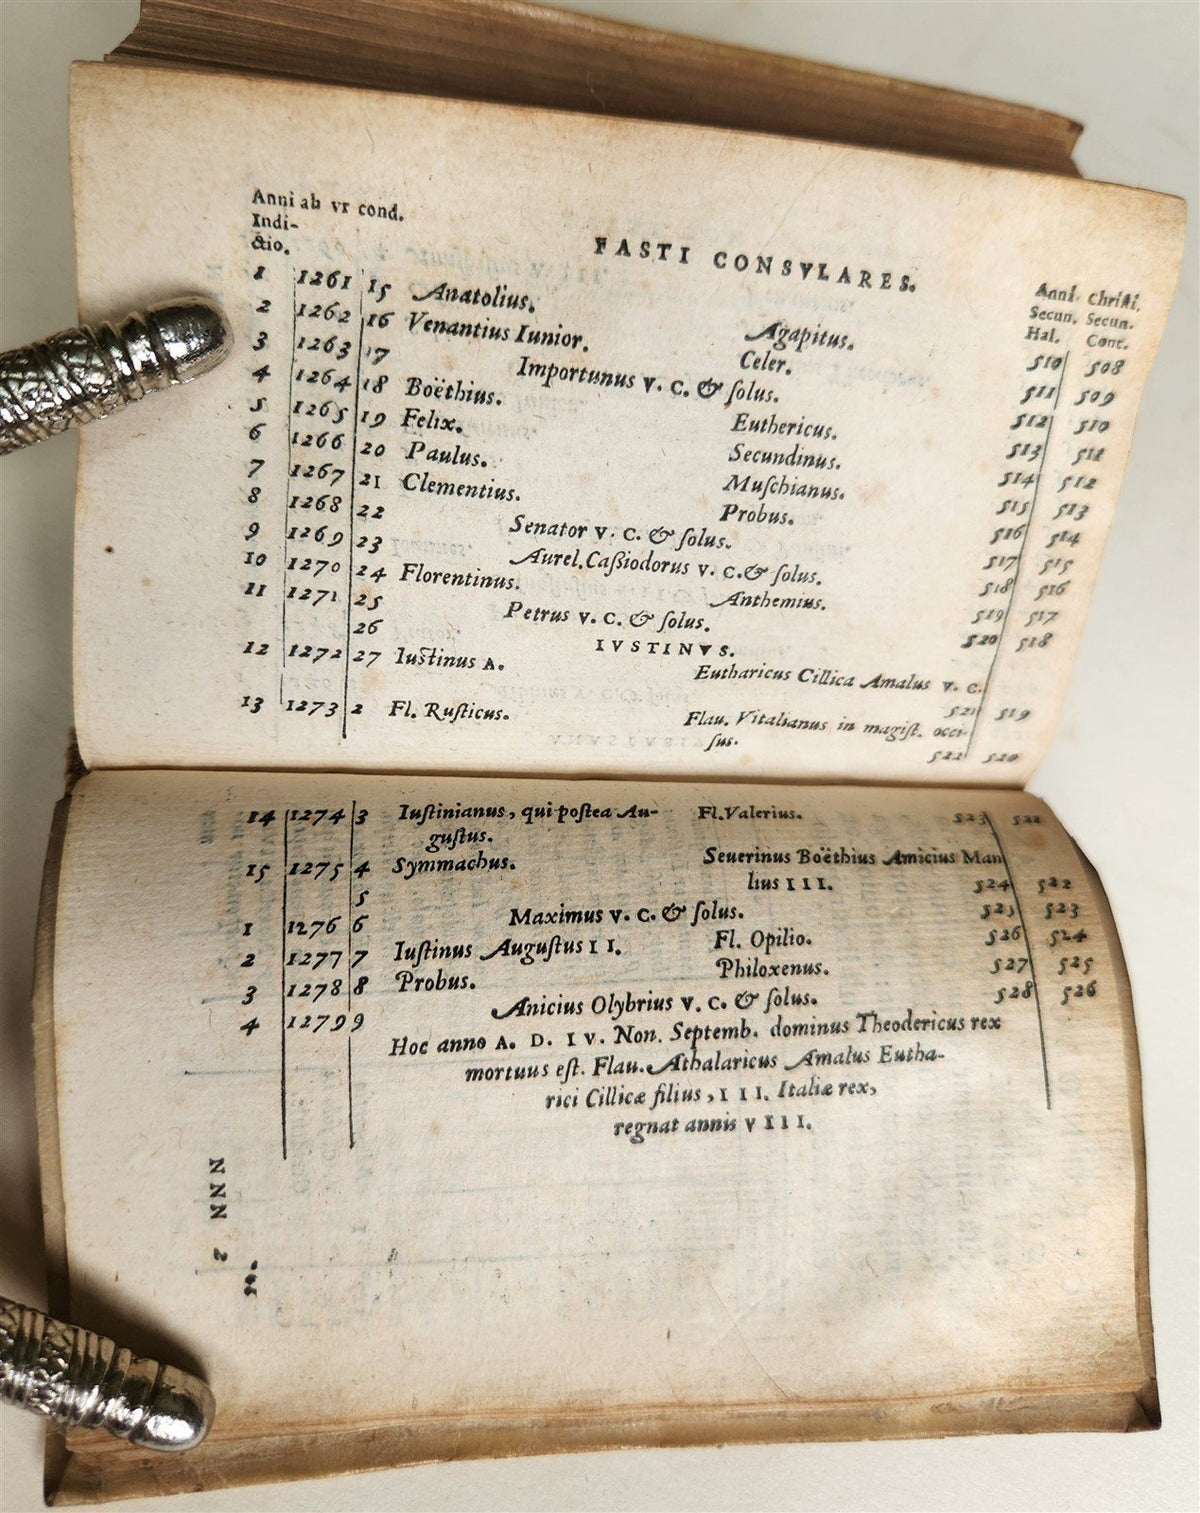 Anni ab vr cond.
Indi-
ctio.
FASTI CONSVLARES.
Anni Christi.
Secun. Secun.
Hal. Cont.
1 1261 15 Anatolius. Agapitus. 510 508
2 1262 16 Venantius Iunior. Celer. 511 509
3 1263 17 Importunus V. C. & ſolus. 512 510
4 1264 18 Boëthius. Euthericus. 513 511
5 1265 19 Felix. Secundinus. 514 512
6 1266 20 Paulus. Muſchianus. 515 513
7 1267 21 Clementius. Probus. 516 514
8 1268 22 Senator V. C. & ſolus. 517 515
9 1269 23 Aurel. Caßiodorus V. C. & ſolus. 518 516
10 1270 24 Florentinus. Anthemius. 519 517
11 1271 25 Petrus V. C. & ſolus. 520 518
26 IVSTINVS.
12 1272 27 Iuſtinus A. Eutharicus Cillica Amalus V. C.
521 519
13 1273 2 Fl. Ruſticus. Flau. Vitalianus in magiſt. occi-
ſus.
522 520
14 1274 3 Iuſtinianus, qui poſtea Au- Fl. Valerius. 523
guſtus.
15 1275 4 Symmachus. Seuerinus Boëthius Amicius Man
lius III. 524 522
5
1 1276 6 Maximus V. C. & ſolus. 525 523
2 1277 7 Iuſtinus Auguſtus II. Fl. Opilio. 526 524
3 1278 8 Probus. Philoxenus. 527 525
4 1279 9 Anicius Olybrius V. C. & ſolus. 528 526
Hoc anno A. D. IV. Non. Septemb. dominus Theodericus rex
mortuus eſt. Flau. Athalaricus Amalus Eutha-
rici Cillicæ filius, III. Italiæ rex,
regnat annis VIII.
NNN 2